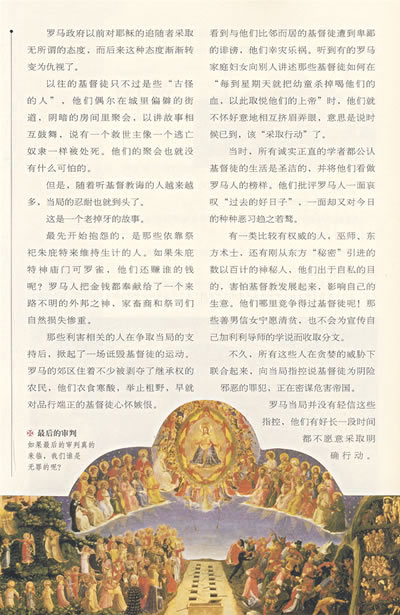 罗马政府以前对耶稣的追随者采取
无所谓的态度，而后来这种态度渐渐转
变为仇视了。
以往的基督徒只不过是些“古怪
的人”，他们偶尔在城里偏僻的街
道，阴暗的房间里聚会，以讲故事相
互鼓舞，说有一个救世主像一个逃亡
奴隶一样被处死。他们的聚会也就没
有什么可怕的。
但是，随着听基督教诲的人越来越
多，当局的忍耐也就到头了。
这是一个老掉牙的故事。
最先开始抱怨的，是那些依靠祭
祀朱庇特来维持生计的人。如果朱庇
特神庙门可罗雀，他们还赚谁的钱
呢？罗马人把金钱都奉献给了一个来
路不明的外邦之神，家畜商和祭司们
自然损失惨重。
那些利害相关的人在争取当局的支
持后，掀起了一场诋毁基督徒的运动。
罗马的郊区住着不少被剥夺了继承权的
农民，他们衣食寒酸，举止粗野，早就
对品行端正的基督徒心怀嫉恨。
最后的审判
如果最后的审判真的
来临，我们谁是
无罪的呢？
看到与他们比邻而居的基督徒遭到卑鄙
的诽谤，他们幸灾乐祸。听到有的罗马
家庭妇女向别人讲述那些基督徒如何在
“每到星期天就把幼童杀掉喝他们的
血，以此取悦他们的上帝”时，他们就
不怀好意地相互挤眉弄眼，意思是说时
候已到，该“采取行动”了。
当时，所有诚实正直的学者都公认
基督徒的生活是圣洁的，并将他们看做
罗马人的榜样。他们批评罗马人一面哀
叹“过去的好日子”，一面却又对今日
的种种恶习趋之若鹜。
有一类比较有权威的人，巫师、东
方术士，还有刚从东方“秘密”引进的
数以百计的神秘人，他们出于自私的目
的，害怕基督教发展起来，影响自己的
生意。他们哪里竞争得过基督徒呢！那
些善男信女宁愿清贫，也不会为宣传自
己加利利导师的学说而收取分文。
不久，所有这些人在贪婪的威胁下
联合起来，向当局指控说基督徒为阴险
邪恶的罪犯，正在密谋危害帝国。
罗马当局并没有轻信这些
指控，他们有好长一段时间
都不愿意采取明
确行动。